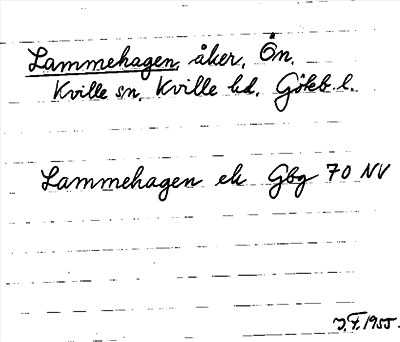 Lammehagen, åker, Ön.
Kville sn, Kville hd, Göteb. l.
Lammehagen ek Gbg 70 NV
J.F. 1955.